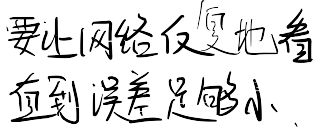 要让网络反复地看
直到误差足够小.